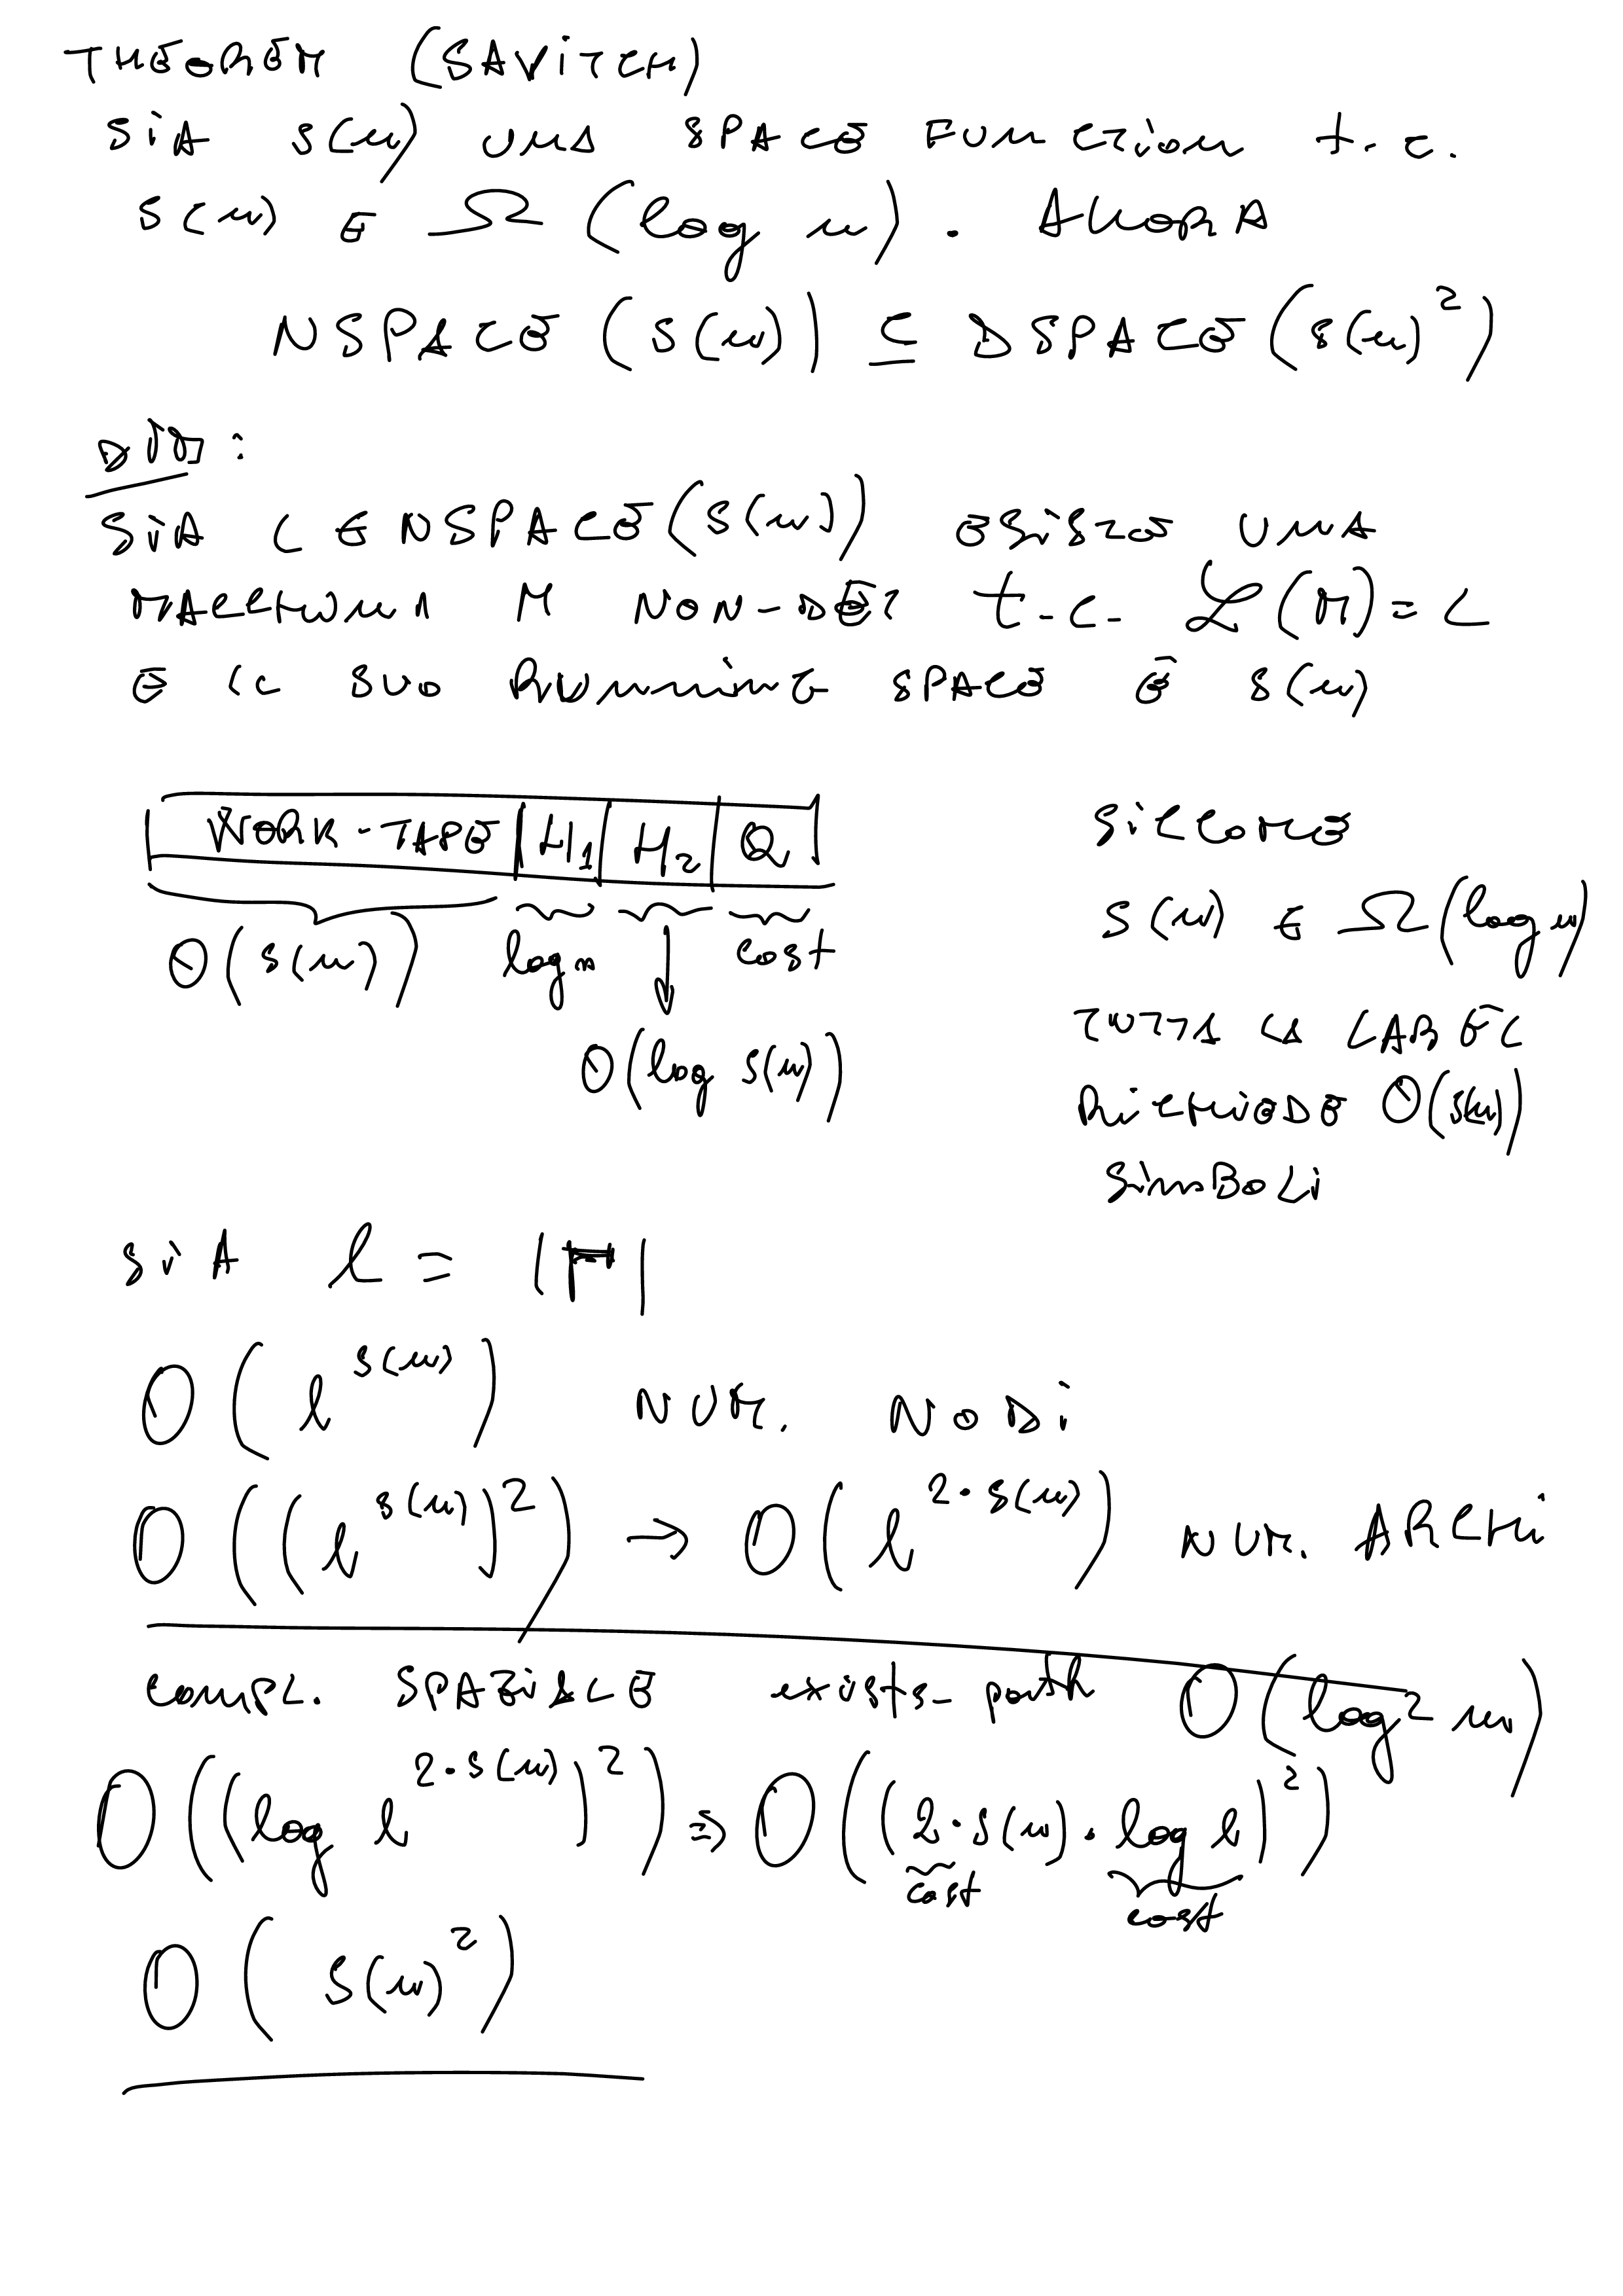 THEOREM (SAVITCH)
SIA s(n) UNA SPACE FUNCTION t.c.
s(n) ∈ Ω(log n). ALLORA
NSPACE(s(n)) ⊆ DSPACE(s(n)²)
DIM:
SIA L ∈ NSPACE(s(n)) ESISTE UNA
MACCHINA M NON-DET t.c. ℒ(M) = L
E IL SUO RUNNING SPACE È s(n)
WORK-TAPE | H₁ | H₂ | Q
O(s(n)) log n cost
O(log s(n))
SICCOME
s(n) ∈ Ω(log n)
TUTTA LA LABEL
RICHIEDE O(s(n))
SIMBOLI
SIA l = |Γ|
O(l^s(n)) NUM. NODI
O((l^s(n))²) → O(l^2·s(n)) NUM. ARCHI
COMPL. SPAZIALE exists_path O(log² n)
O((log l^2·s(n))²) ⇒ O((2·s(n)·log l)²)
cost cost
O(s(n)²)